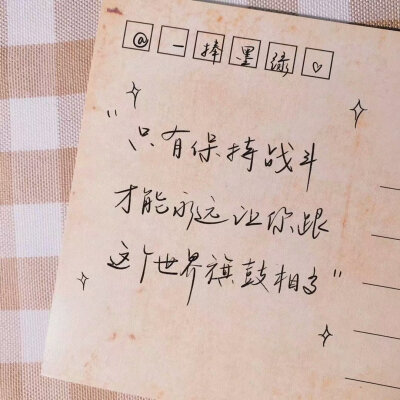 @一捧墨绿♡
"只有保持战斗
才能永远让你跟
这个世界旗鼓相当"